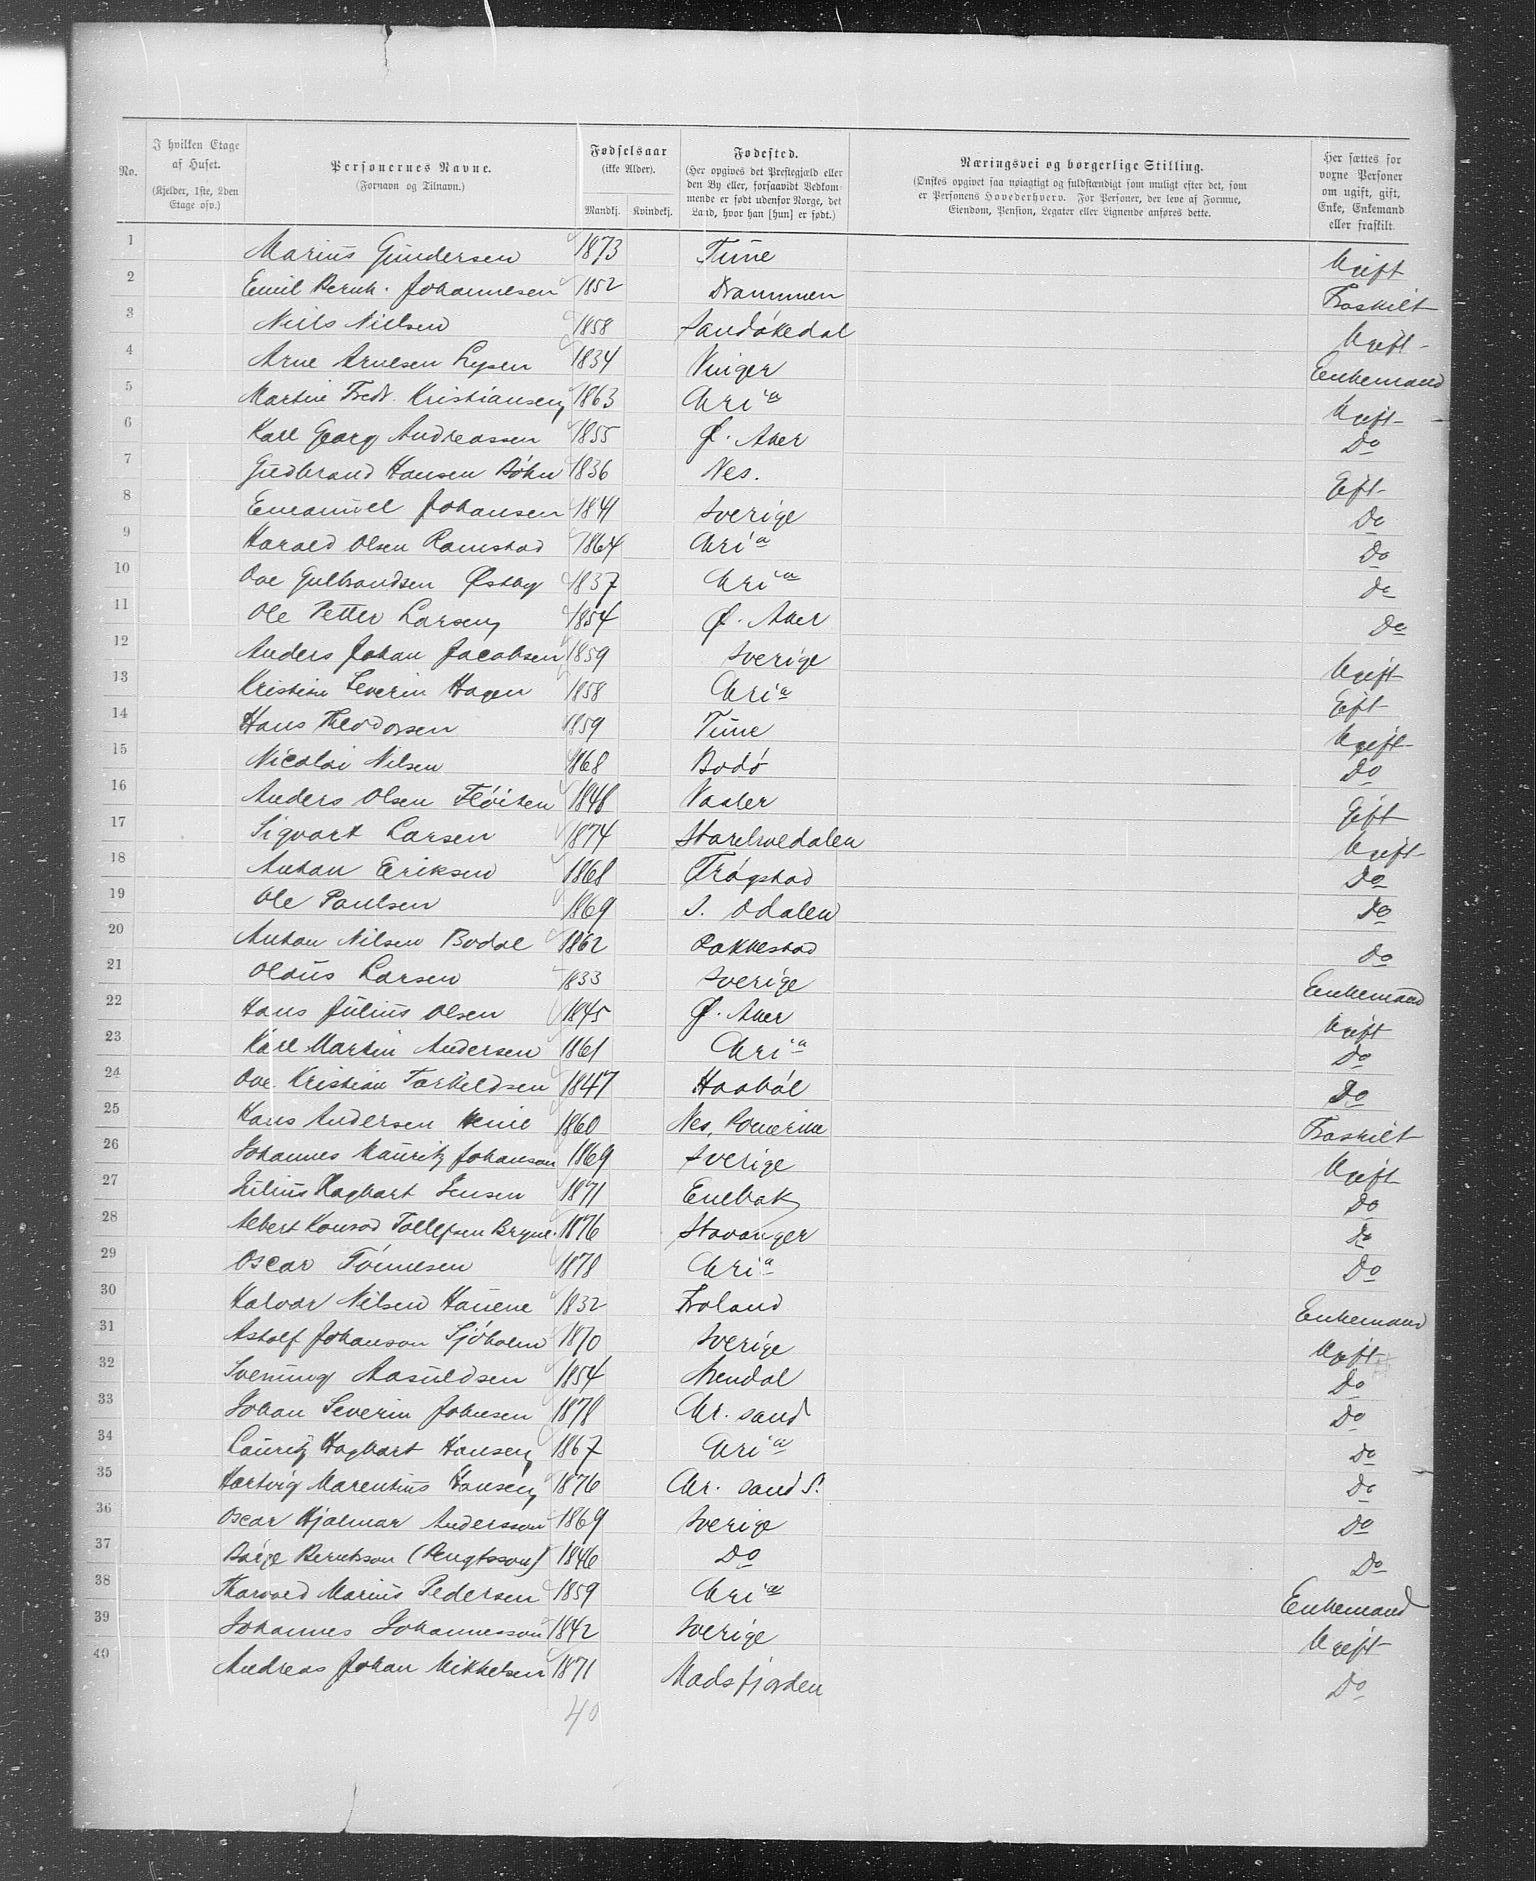 No.
I hvilken Etage af Huset.
(Kjelder, 1ste, 2den Etage osv.)
Personernes Navne.
(Fornavn og Tilnavn.)
Fødselsaar
(ikke Alder).
Mandkj. Kvindekj.
Fødested.
(Her opgives det Prestegjæld eller
den By eller, forsaavidt Vedkom-
mende er født udenfor Norge, det
Land, hvor han [hun] er født.)
Næringsvei og borgerlige Stilling.
(Ønskes opgivet saa nøiagtigt og fuldstændigt som muligt efter det, som
er Personens Hovederhverv. For Personer, der leve af Formue,
Eiendom, Pension, Legater eller Lignende anføres dette.
Her sættes for
voxne Personer
om ugift, gift,
Enke, Enkemand
eller fraskilt.
1 Marius Gundersen 1873 Tune Ugift
2 Emil Bernh. Johannesen 1852 Drammen Fraskilt
3 Niels Nielsen 1858 Sandøkedal Ugift
4 Arne Arnesen Lysen 1834 Vinger Enkemand
5 Martin Fredr. Kristiansen 1863 Chri^a Ugift
6 Karl Georg Andreassen 1855 Ø. Aker Do
7 Gudbrand Hansen Bøhn 1836 Nes. Gift
8 Emanuel Johansen 1841 Sverige Do
9 Harald Olsen Ramstad 1864 Chri^a Do
10 Ove Gulbrandsen Østby 1837 Chri^a Do
11 Ole Petter Larsen 1854 Ø. Aker Do
12 Anders Johan Jacobsen 1859 Sverige Ugift
13 Kristian Severin Hagen 1858 Chri^a Gift
14 Hans Theodorsen 1859 Tune Ugift
15 Nicolai Nilsen 1868 Bodø Do
16 Anders Olsen Fløiten 1848 Vaaler Gift
17 Sigvart Larsen 1874 Ugift
18 Anton Eriksen 1868 Trøgstad Do
19 Ole Paulsen 1869 S. Odalen Do
20 Anton Nilsen Bodal 1862 Rakkestad Do
21 Olaus Larsen 1833 Sverige Enkemand
22 Hans Julius Olsen 1845 Ø. Aker Ugift
23 Karl Martin Andersen 1861 Chri^a Do
24 Ove Kristian Torkeldsen 1847 Haabøl Do
25 Hans Andersen 1860 Nes, Romerike Fraskilt
26 Johannes Mauritz Johanson 1869 Sverige Ugift
27 Julius Hagbart Jensen 1871 Enebak Do
28 Albert Konrad Tollefsen Bryne 1876 Stavanger Do
29 Oscar Tønnesen 1878 Chri^a Do
30 Halvor Nilsen Hauene 1832 Froland Enkemand
31 Astolf Johanson Sjøholm 1870 Sverige Ugift
32 Svenung Aasuldsen 1854 Arendal Do
33 Johan Severin Johnsen 1878 Chr. sand Do
34 Lauritz Hagbart Hansen 1867 Chri^a Do
35 Hartvig Marentius Hansen 1876 Chr. sand S. Do
36 Oscar Hjalmar Andersson 1869 Sverige Do
37 Børge Berntsson (Bengtsson) 1846 Do Do
38 Thorvald Marius Pedersen 1859 Chri^a Enkemand
39 Johannes Johannesson 1842 Sverige Ugift
40 Andreas Johan Mikkelsen 1871 Madsfjorden Do
40